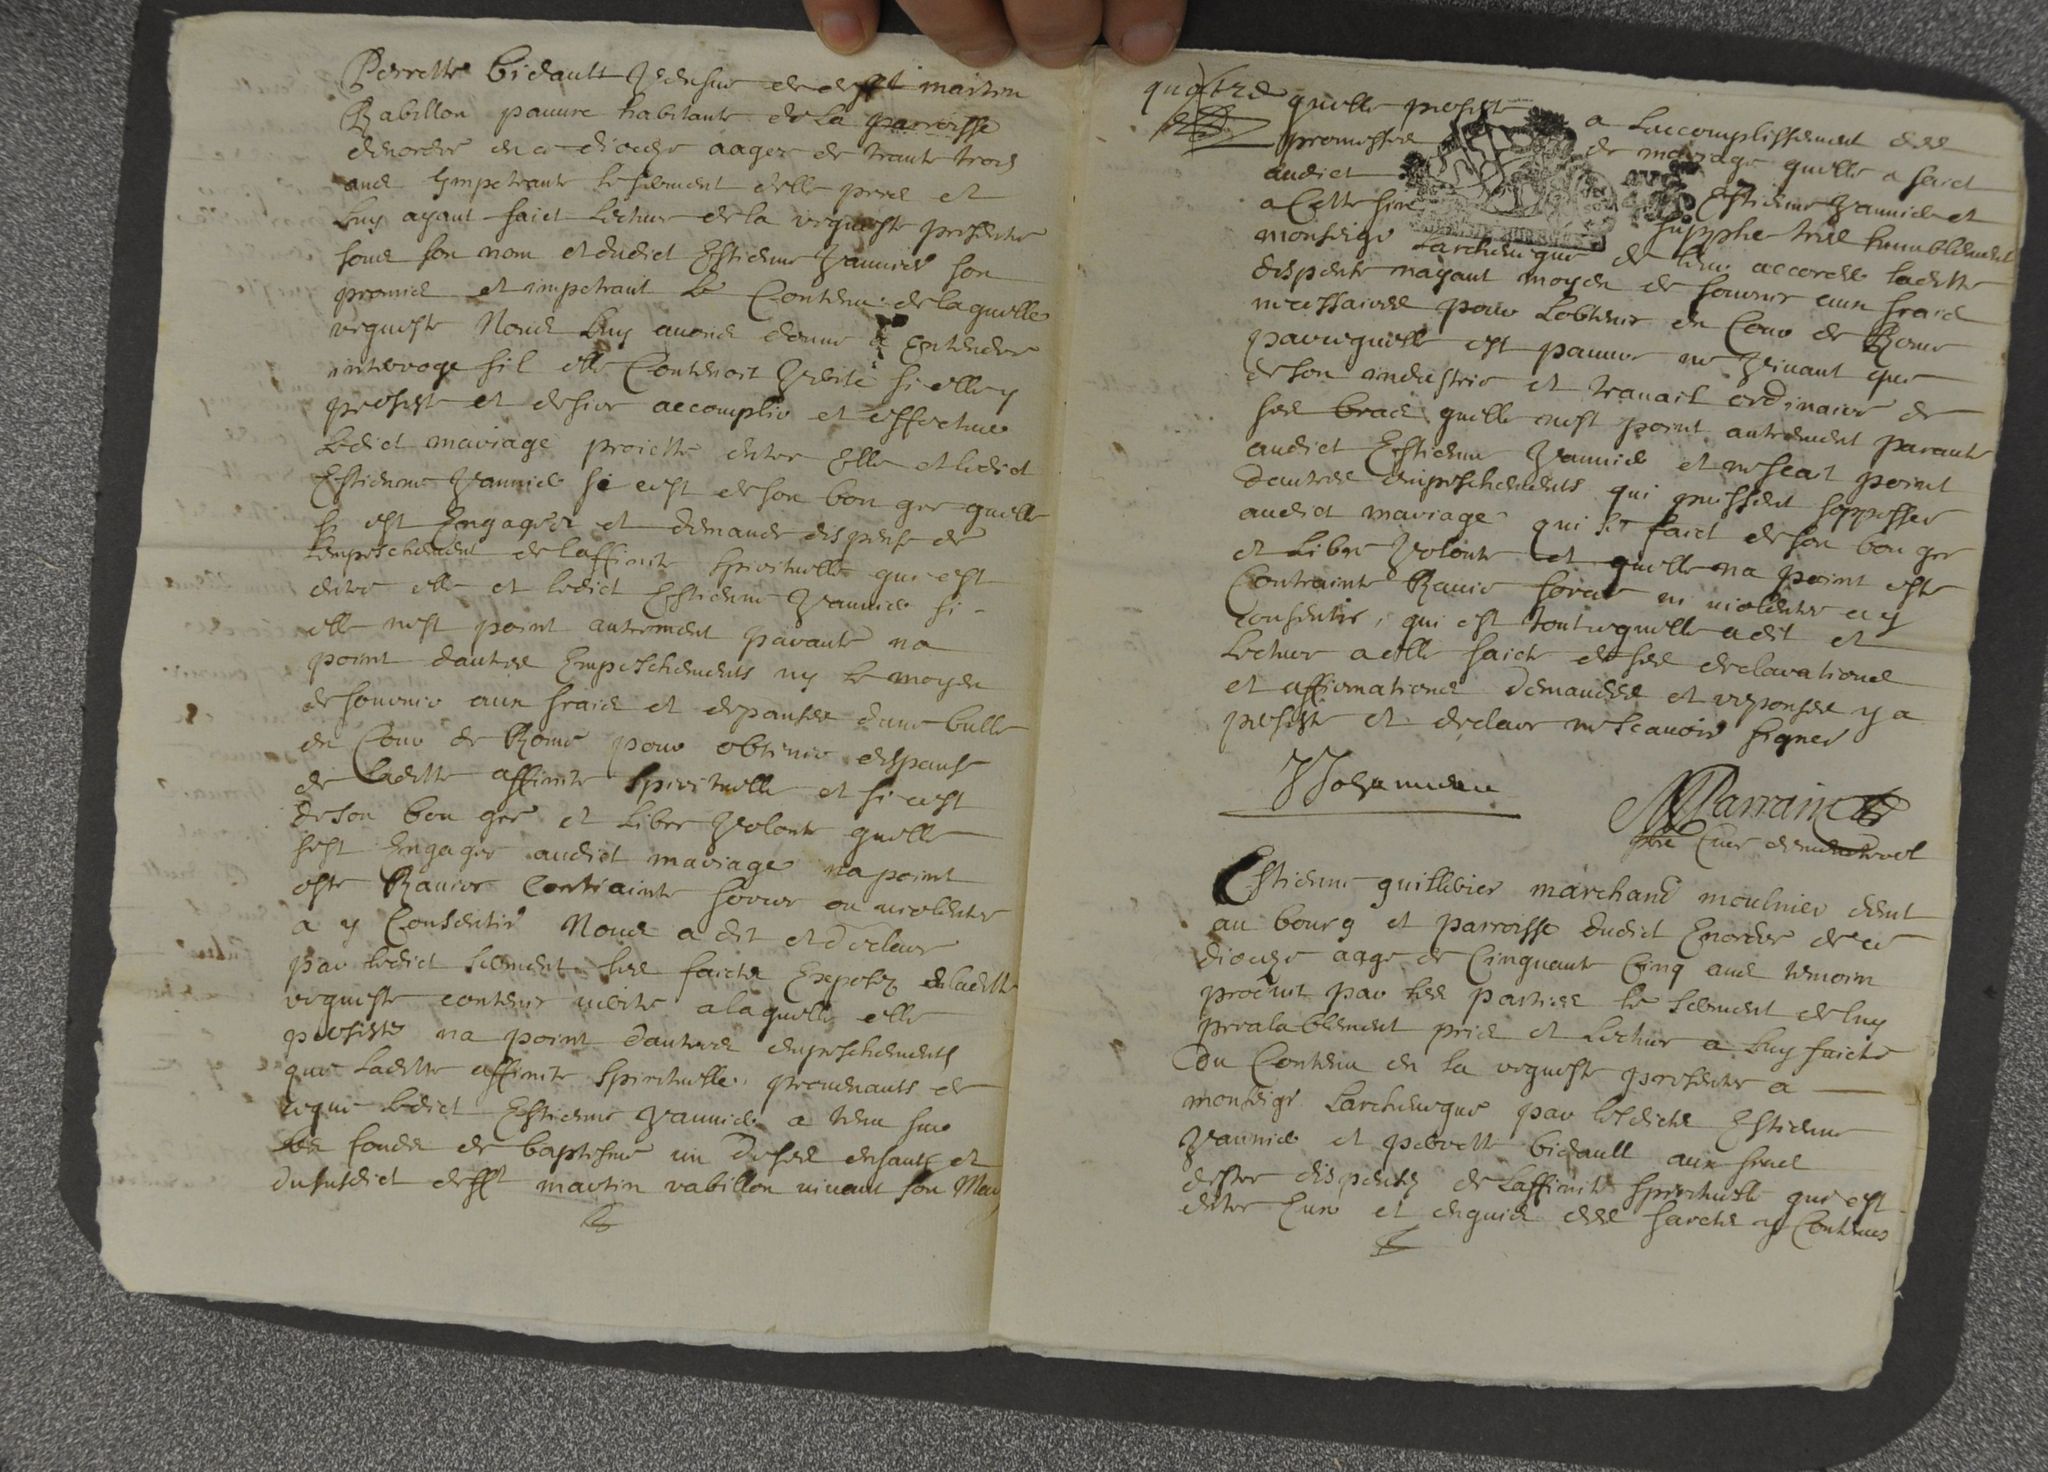 Perrette bidault Vefve de defft martin
Rabillon pauvre habitante de la parroisse
denordre en ce dioceze aagee de trante trois
ans Impetrante le serment delle pris et
luy ayant faict lecture de la requeste presentee
sous son nom et dudict Estienne Jannics son
promis et impetrant le Contenu de laquelle
requeste Nous luy avons donne a Entendre
interroge sil elle Contenoit Verite si elle y
persiste et desire accomplir et effectuer
ledict mariage proiette entre Elle et ledict
Estienne Jannics si cest de son bon gre quelle
si est Engagee et demande dispense de
lempeschement de laffinite spirituelle qui est
entre elle et ledict Estienne Jannics si
elle nest point autrement parante na
point dautres Empeschements ny le moyen
de fournir aux frais et depanses dune bulle
en Cour de Rome pour obtenir dispanse
de laditte affinite spirituelle et si cest
de son bon gre et libre Volonte quelle
sest Engagee audict mariage na point
este Ravie Contrainte forcee ou violentee
a y Consentir Nous a dit et declare
par ledict serment les faicts Exposez de laditte
requeste contenir verite a laquelle elle
persiste na point dautres empeschements
que laditte affinite spirituelle provenants de
ce que ledict Estienne Jannics a tenu sur
les fonds de baptesme un de ses enfants et
du susdict defft martin rabillon vivant son Mary
quatre
quelle persiste a laccomplissement des
promesses de mariage quelle a faict
audict Estienne Jannics et
a Cette fin supplie tres humblement
monseigr Larchevecque de leur accorder laditte
dispense nayant moyen de fournir aux frais
necessaires pour lobtenir en Cour de Rome
parcequelle est pauvre ne Vivant que
de son industrie et travail ordinaire de
ses bras quelle nest point autrement parante
audict Estienne Jannics et ne scait point
dautres empeschements qui puissent sopposser
audict mariage qui se faict de son bon gre
et libre Volonte et quelle na point este
Contrainte Ravie forcee ni violentee a y
Consentir, qui est tout ce quelle a dit et
lecture a elle faicte de ses declarations
et affirmations demandes et reponses y a
persiste et declare ne scavoir signer
Parrain
Estienne guillebier marchand moulnier demt
au bourg et parroisse dudict Enordre de ce
dioceze aage de Cinquante Cinq ans temoin
produit par les parties le serment de luy
prealablement pris et lecture a luy faicte
du Contenu en la requeste presentee a
monseigr Larchevecque par lesdicts Estienne
Jannics et perrette bidault aux fins
destre dispensez de laffinite spirituelle qui est
entre Eux et enquis des faicts y Contenus